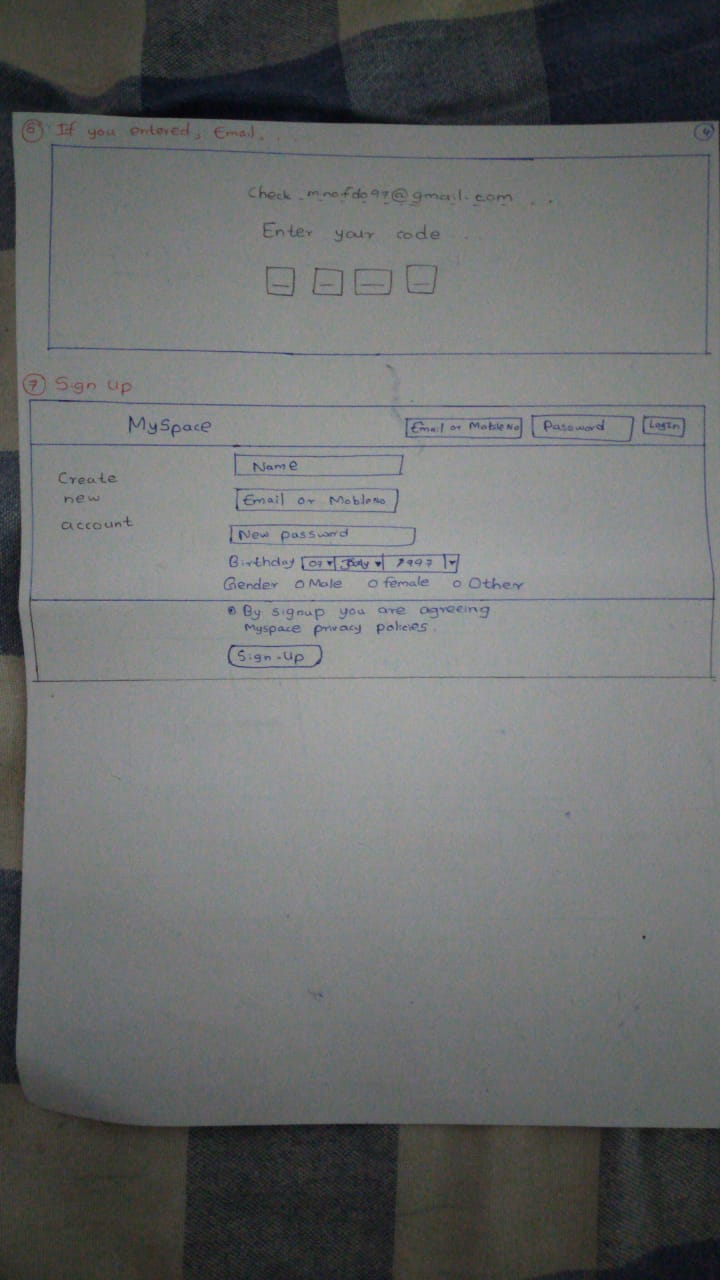 6 If you entered, Email. . .
4
Check mnofdo97@gmail.com . .
Enter your code . .
7 Sign Up
MySpace Email or MobileNo Password LogIn
Create
new
account
Name
Email or MobileNo
New password
Birthday 07 July 1997
Gender o Male o female o Other
By signup you are agreeing
Myspace privacy policies.
Sign-Up